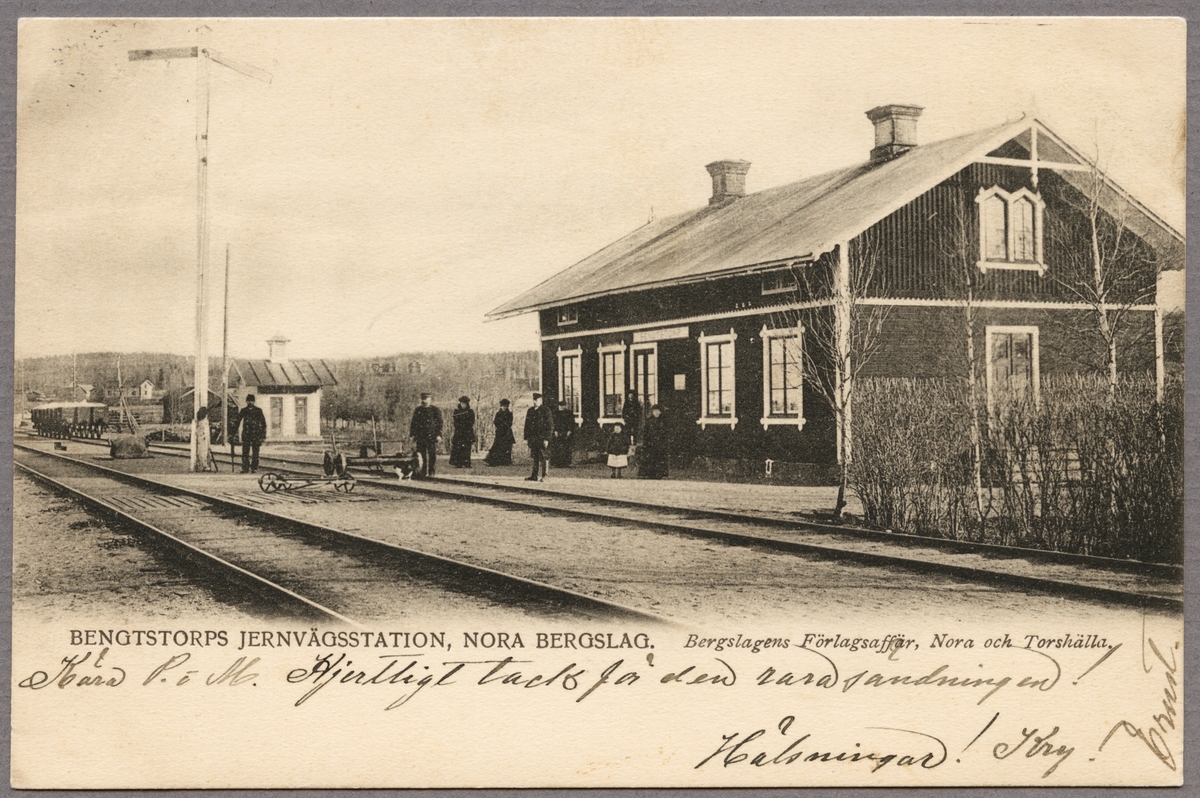 BENGTSTORPS JERNVÄGSSTATION, NORA BERGSLAG. Bergslagens Förlagsaffär, Nora och Torshälla.
Kära P. o M. Hjertligt tack för den rara sändningen!
Hälsningar! Kry!
Ernst.